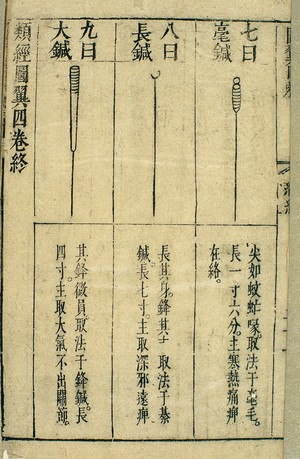 七曰
毫鍼
尖如蚊虻喙取法于毫毛。
長一寸六分。主寒熱痛痺
在絡。
八曰
長鍼
長其身。鋒其 取法于綦
鍼。長七寸。主取深邪遠痺
九曰
大鍼
其鋒微員取法于鋒鍼。長
四寸。主取大氣不出關節。
類經圖翼四卷終